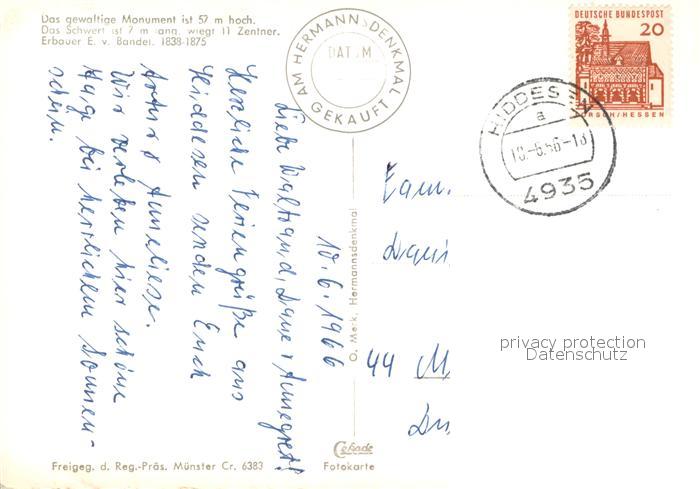 Das gewaltige Monument ist 57 m hoch.
Das Schwert ist 7 m lang, wiegt 11 Zentner.
Erbauer E. v. Bandel. 1838-1875
AM HERMANNSDENKMAL
DATUM
GEKAUFT
DEUTSCHE BUNDESPOST
20
LORSCH/HESSEN
HIDDESEN
a
10.-6.66-18
4935
10.6.1966
Liebe Waltraud, Dauer + Annegret!
Herzliche Feriengrüße aus
Hiddesen senden Euch
Artur + Anneliese.
Wir verleben hier schöne
Tage bei herrlichem Sonnen-
schein.
O. Merk, Hermannsdenkmal
Fam.
44 M
privacy protection
Datenschutz
Cekade
Freigeg. d. Reg.-Präs. Münster Cr. 6383
Fotokarte